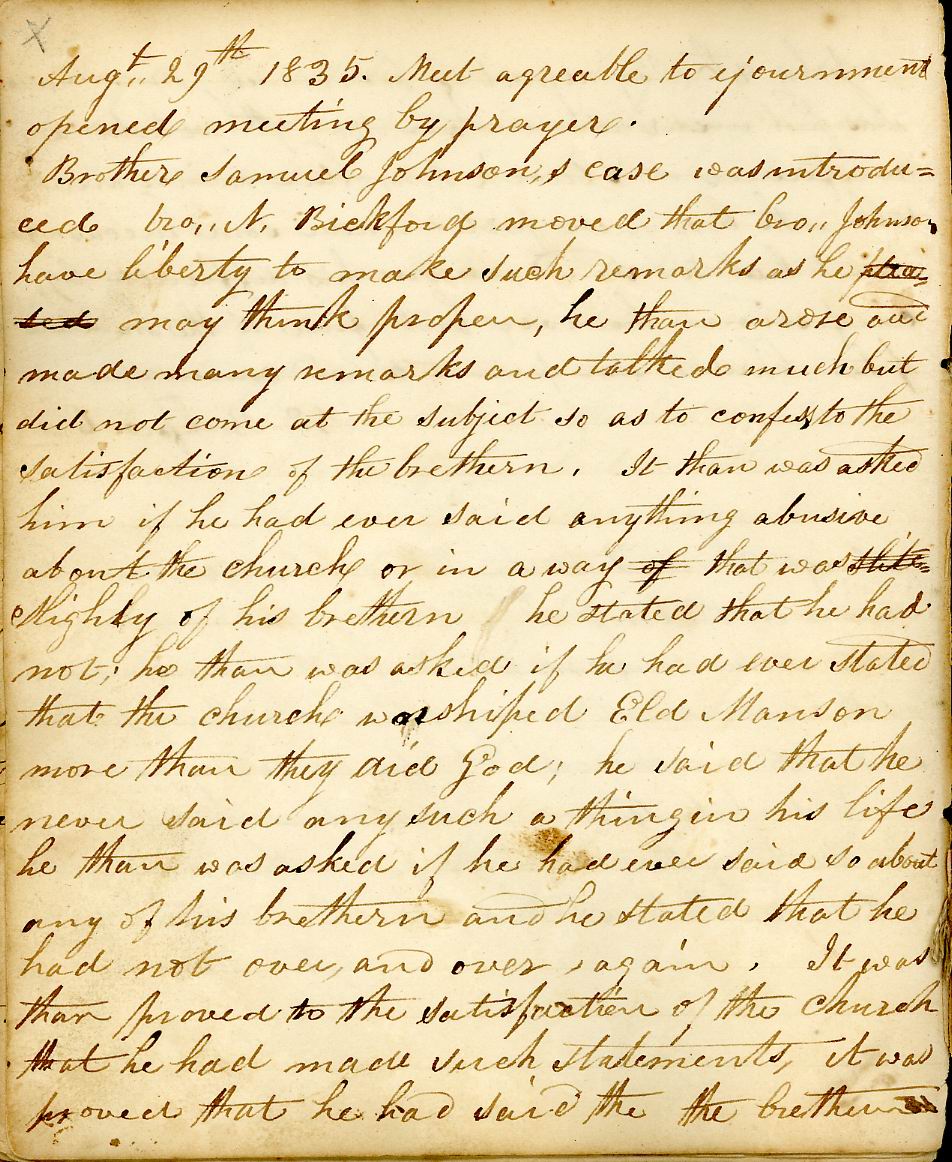 X
Augt,, 29th 1835. Meet agreable to ejournment
opened meeting by prayer.
Brother Samuel Johnson,s case was introdu=
ced bro,, N. Bickford moved that bro,, Johnson
have liberty to make such remarks as he plea=
sed may think proper, he than arose and
made many remarks and talked much but
did not come at the subject so as to confess to the
satisfaction of the brethern. It than was asked
him if he had ever said anything abusive
about the church or in a way of that was slite=
slighly of his brethern he stated that he had
not; he than was asked if he had ever stated
that the church worshiped Eld Manson
more than they did God; he said that he
never said any such a thing in his life
he than was asked if he had ever said so about
any of his brethern and he stated that he
had not over, and over again. It was
than proved to the satisfaction of the church
that he had made such statements, it was
proved that he had said the the brethern